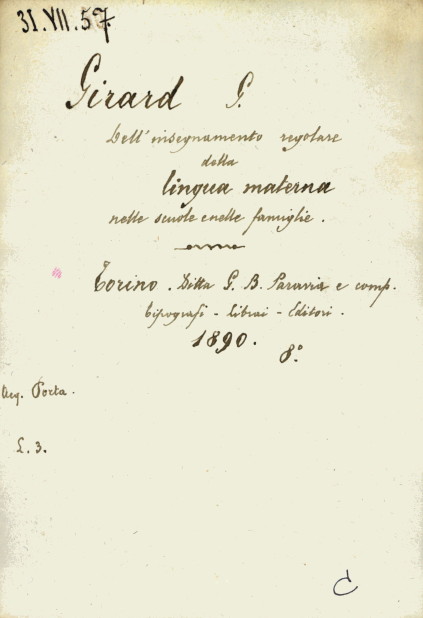 31.VII.57.
Girard G.
Dell'insegnamento regolare
della
lingua materna
nelle scuole e nelle famiglie.
Torino. Ditta G. B. Paravia e comp.
tipografi - librai - Editori.
1890.
8.°
Acq. Porta.
L. 3.
C